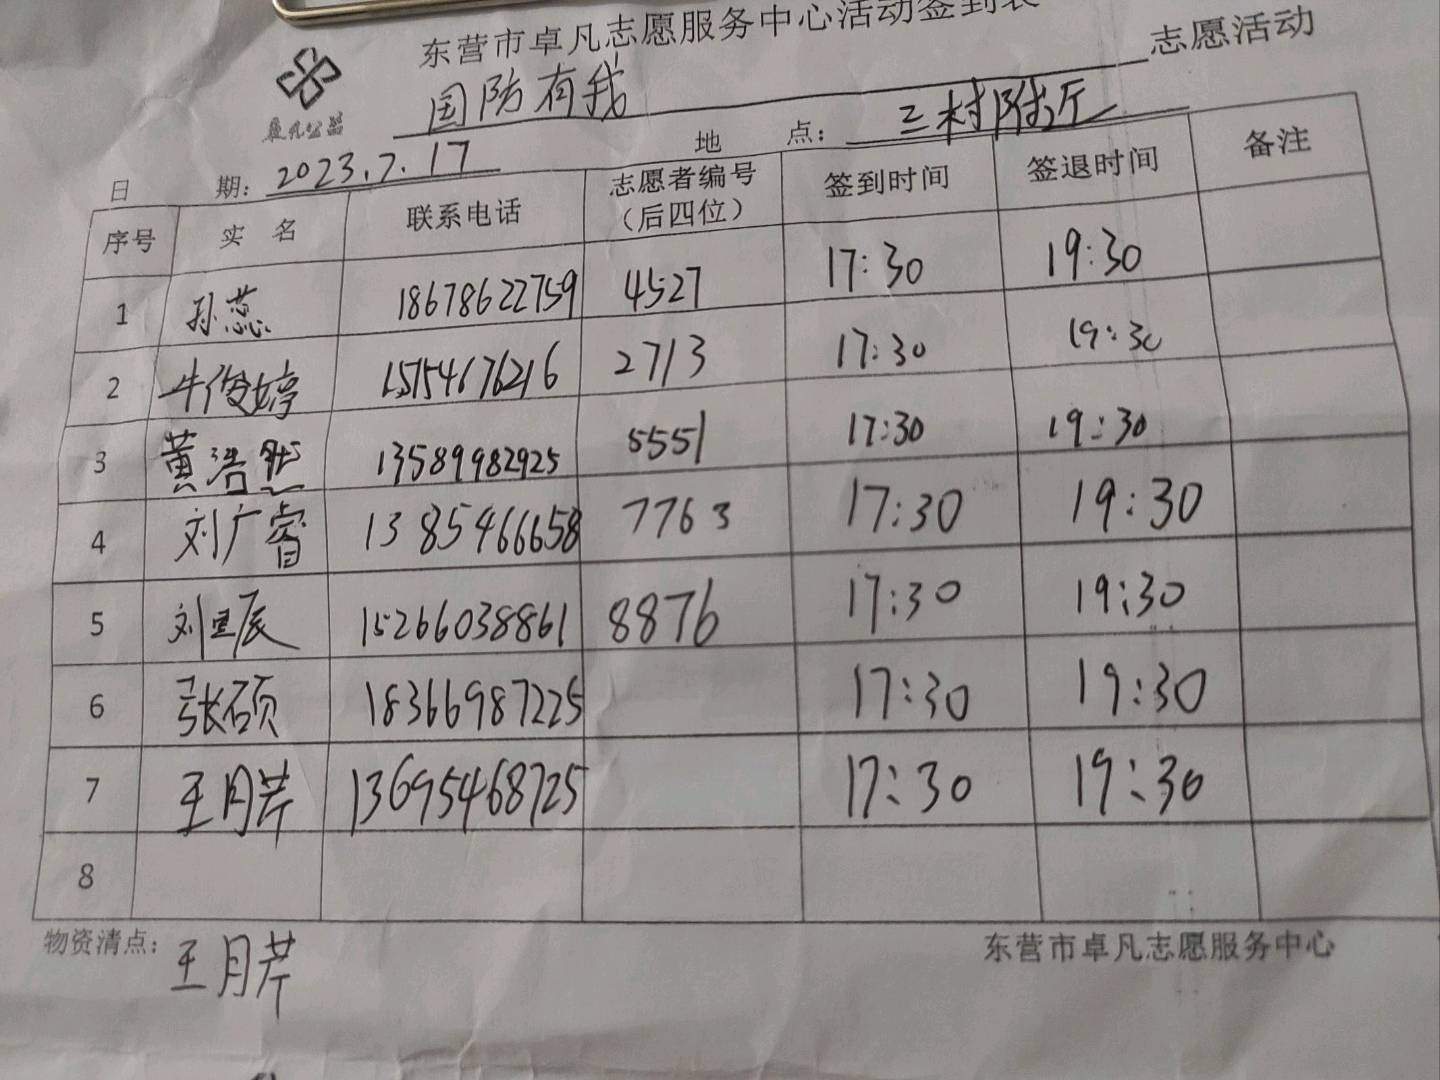 东营市卓凡志愿服务中心活动签到表
国防有我 志愿活动
卓凡公益
日期：2023.7.17 地点：三村附近
序号 实名 联系电话 志愿者编号（后四位） 签到时间 签退时间 备注
1 孙蕊 18678622759 4527 17:30 19:30
2 牛俊婷 15754676216 2713 17:30 19:30
3 黄浩然 13589982925 5551 17:30 19:30
4 刘广睿 1385466658 7763 17:30 19:30
5 刘昱辰 15266038861 8876 17:30 19:30
6 张硕 18366987225 17:30 19:30
7 王月芹 13695468725 17:30 19:30
8
物资清点：王月芹 东营市卓凡志愿服务中心